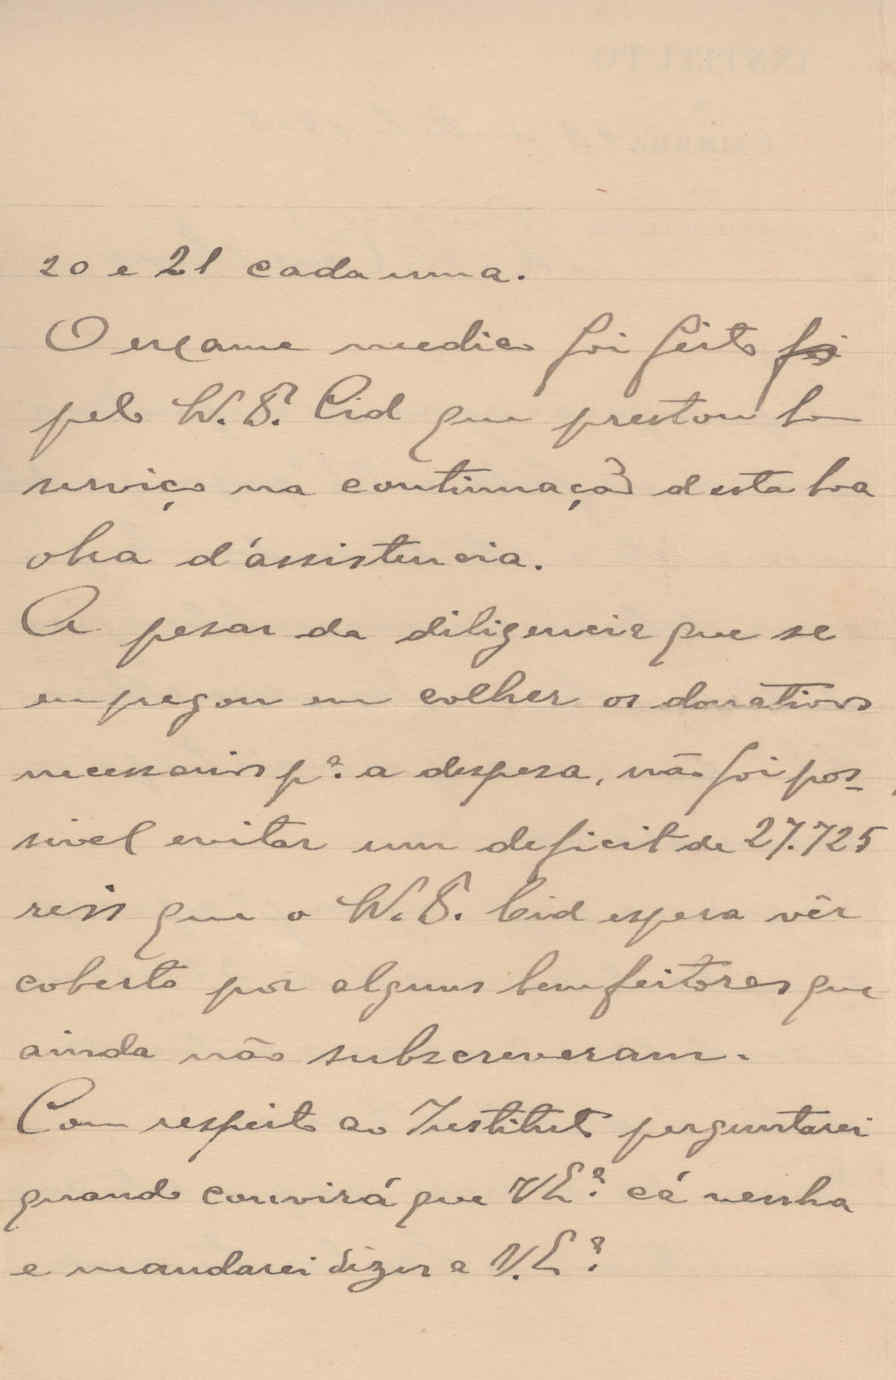 20 e 21 cada uma.
O exame medico foi feito foi
pelo W. S. Cid que prestou bom
serviço na continuação desta boa
obra d'assistencia.
A pesar da diligencia que se
empregou em colher os donativos
necessarios pª. a despesa, não foi pos-
sivel evitar um deficit de 27.725
reis que o W. S. Cid espera vêr
coberto por alguns bemfeitores que
ainda não subscreveram.
Com respeito ao Instituto perguntarei
quando convirá que V Eª. cá venha
e mandarei dizer a V. Eª.